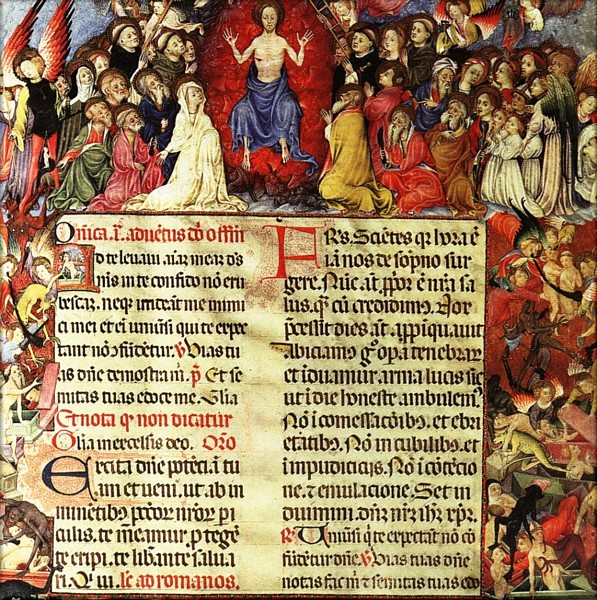 Onica .i. aduẽtus dñi offm̃
Ad te leuaui aiaʒ meaʒ dˀs
mˀis in te confido nõ eru
bescaʒ. neqʒ irrideãt me inimi
ci mei et ei uniũsi qui te expe
tant nõ cõfũdetur. ℣ Vias tu
as dñe demostra m̃. P̃. Et se
mitas tuas edoce me. Gl̃ia
Et nota qʒ non dicatur
Gl̃ia in excelsis deo. Oro
Excita dñe potẽciã tu
am et ueni. ut ab in
minẽtibus pctõꝝ nr̃oꝝ pi
culis. te mẽamur. ꝓtegẽ
te eripi. te libante salua
ri. Qui. le ad romanos.
FRˀs. Sciẽtes qꝛ hora ẽ
iã nos de sõpno sur
gere. Nũc aũt ꝓpior ẽ nr̃a sa
lus. qʒ cũ credidimꝰ. Nox
p̃cessit dies aũt appĩquauit
Abiciamꝰ gͦ opa tenebraꝝ
et iduamur arma lucis sic
ut i die honeste ambulemꝰ
Nõ i comessacõibꝰ. et ebri
etatibꝰ. Nõ in cubilibꝰ. et
impudiciciis. Nõ i cõtẽcio
ne. et emulacione. Set in
duimini. dñm nr̃m ihm̃ xp̃m.
℟ Uniũsi q̃ te expectãt nõ cõ
fũdẽtur dñe. ℣ Vias tuas dñe
notas fac m̃ et semitas tuas edo